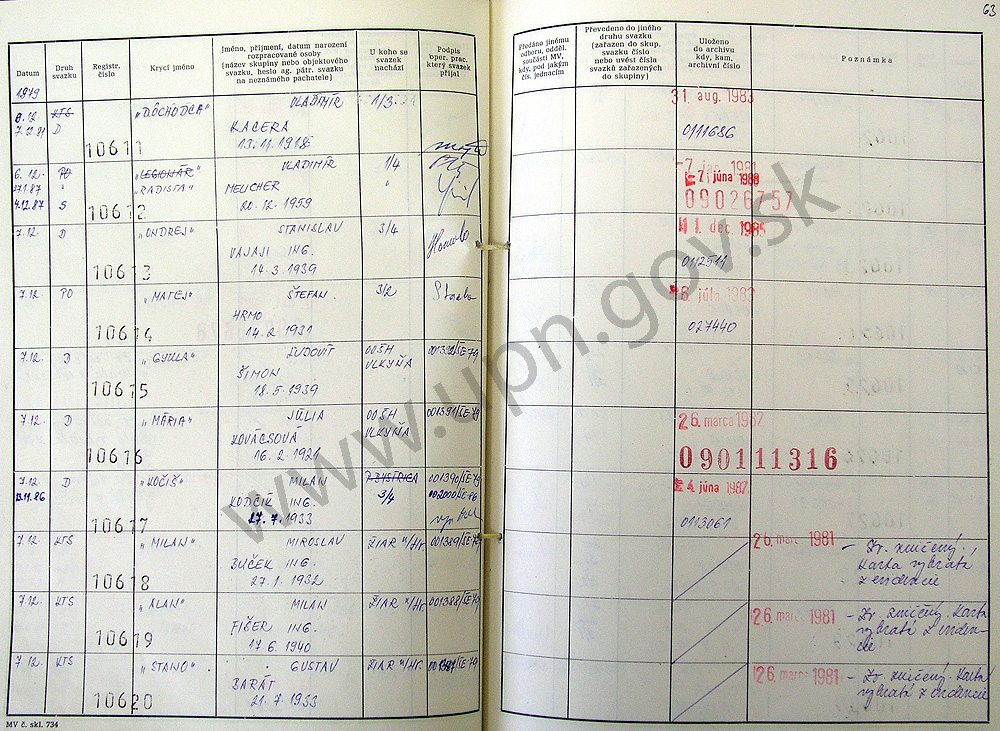 63
Datum
Druh svazku
Registr. číslo
Krycí jméno
Jméno, příjmení, datum narození
rozpracované osoby
(název skupiny nebo objektového
svazku, heslo ag. pátr. svazku
na neznámého pachatele)
U koho se
svazek
nachází
Podpis
oper. prac.
který svazek
přijal
Předáno jinému
odboru, odděl.
součásti MV,
kdy, pod jakým
čís. jednacím
Převedeno do jiného
druhu svazku
(zařazen do skup.
svazku číslo
nebo uvést číslo
svazků zařazených
do skupiny)
Uloženo
do archivu
kdy, kam,
archivní číslo
Poznámka
1979
8.12. KTS „DÔCHODCA" VLADIMÍR 1/3 31 aug. 1983
7.12.81 D KACERA 0111686
10611 13.11.1918
6.12. PO „LEGIONÁR" VLADIMÍR 1/4 -7 1981
„RADISTA" MELICHER " 7. júna 1988
4.12.87 S 09026757
10612 20.12.1959
7.12. D „ONDREJ" STANISLAV 3/4 1 dec. 1985
VAJAJI ING. 0112511
10613 14.3.1939
7.12. PO „MATEJ" ŠTEFAN 3/2 8. júla 1983
HRMO 027440
10614 14.2.1931
7.12. D „GYULA" ĽUDOVÍT OOŠH 001392/ŠE-79
ŠIMON VLKYŇA
10615 18.5.1939
7.12. D „MÁRIA" JÚLIA OOŠH 001391/ŠE-79 26. marca 1982
KOVÁCSOVÁ VLKYŇA 090111316
10616 16.2.1921
7.12. D „KOČIŠ" MILAN P.BYSTRICA 001390/ŠE-79 4. júna 1987
KODČÍK 3/4 002000/ŠE-86 0113061
10617 27.7.1933
7.12. KTS „MILAN" MIROSLAV ŽIAR n/Hr. 001389/ŠE-79 26. marc 1981 – Zv. zničený.
BUČEK ING. Karta vybratá
10618 27.1.1932 z evidencie
7.12. KTS „ALAN" MILAN ŽIAR n/Hr. 001388/ŠE-79 26. marc 1981 – Zv. zničený. Karta
FIŠER ING. vybratá z eviden-
10619 17.6.1940 cie
7.12. KTS „STANO" GUSTAV ŽIAR n/Hr. 001387/ŠE-79 26. marc 1981 – Zv. zničený. Karta
BARÁT vybratá z evidencie
10620 21.7.1933
MV č. skl. 734
www.upn.gov.sk